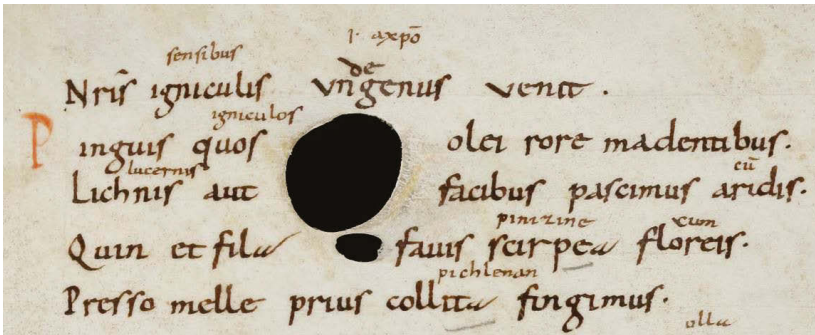 sensibus .i. axpō
Nrīs igniculis unde genus venit.
igniculos
Pinguis quos olei rore madentibus.
lucernis cū
Lichnis aut facibus pascimus aridis.
pinizine
Quin et fila favis scirpea floreis.
pichlenan
Presso melle prius collita fingimus.